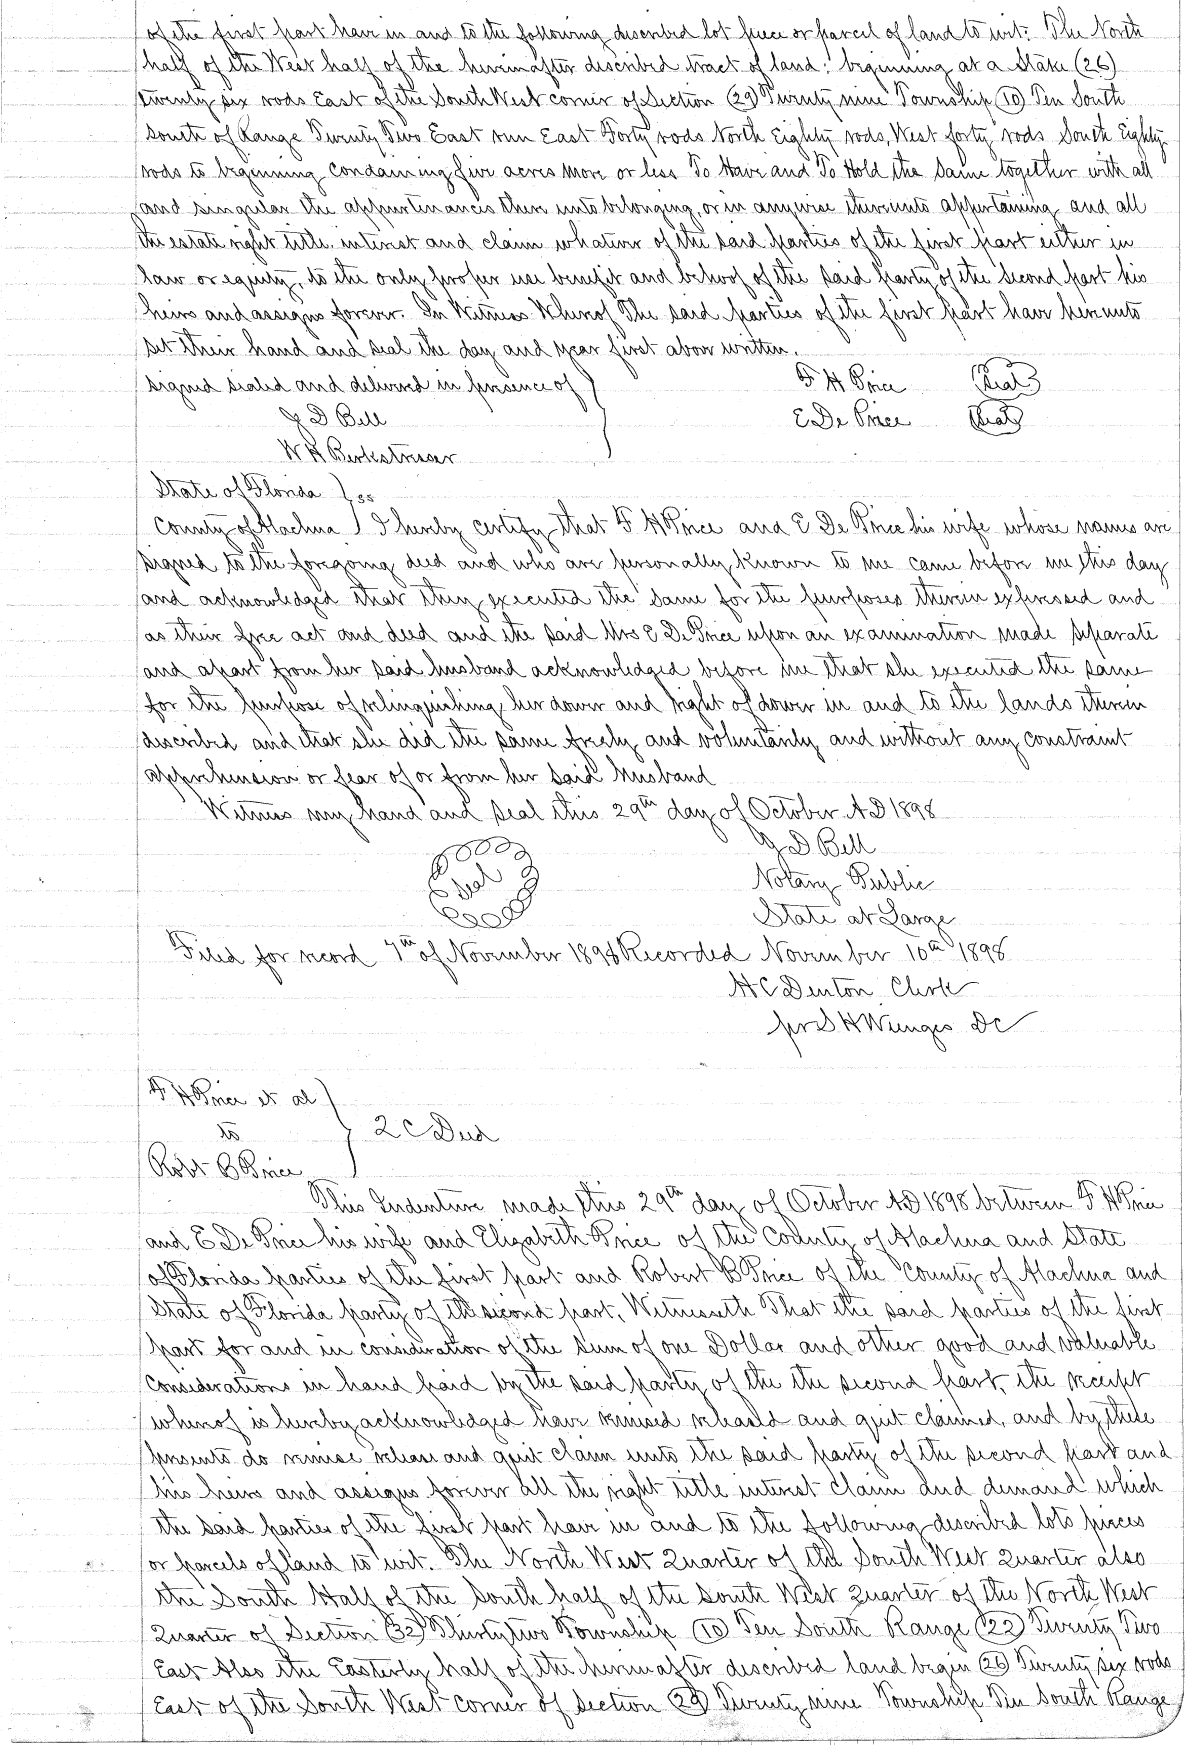 of the first part have in and to the following described lot piece or parcel of land to wit: The North
half of the West half of the hereinafter described tract of land: beginning at a Stake (26)
twenty six rods East of the South West corner of Section (29) Twenty nine Township (10) Ten South
South of Range Twenty Two East run East Forty rods North Eighty rods, West forty rods South Eighty
rods to beginning containing five acres more or less To Have and To Hold the same together with all
and singular the appurtenances there unto belonging, or in anywise thereunto appertaining and all
the estate right title interest and claim whatever of the said parties of the first part either in
law or equity, to the only proper use benefit and behoof of the said party of the second part his
heirs and assigns forever. In Witness Whereof The said parties of the first part have hereunto
set their hand and seal the day and year first above written.
Signed sealed and delivered in presence of F H Price (Seal)
J D Bell E De Price (Seal)
W H Berkstresser
State of Florida } ss
County of Alachua } I hereby certify that F H Price and E De Price his wife whose names are
signed to the foregoing deed and who are personally known to me came before me this day
and acknowledged that they executed the same for the purposes therein expressed and
as their free act and deed and the said Mrs E De Price upon an examination made separate
and apart from her said husband acknowledged before me that she executed the same
for the purpose of relinquishing her dower and right of dower in and to the lands therein
described and that she did the same freely and voluntarily and without any constraint
apprehension or fear of or from her said husband
Witness my hand and seal this 29th day of October A D 1898
J D Bell
Seal Notary Public
State at Large
Filed for record 7th of November 1898 Recorded November 10th 1898
H C Denton Clerk
per S H Wienges DC
F H Price et al }
to } 2 C Deed
Robt B Price
This Indenture made this 29th day of October AD 1898 between F H Price
and E De Price his wife and Elizabeth Price of the County of Alachua and State
of Florida parties of the first part and Robert B Price of the County of Alachua and
State of Florida party of the second part, Witnesseth That the said parties of the first
part for and in consideration of the sum of one Dollar and other good and valuable
considerations in hand paid by the said party of the the second part, the receipt
whereof is hereby acknowledged have remised released and quit claimed, and by these
presents do remise release and quit claim unto the said party of the second part and
his heirs and assigns forever all the right title interest claim and demand which
the said parties of the first part have in and to the following described lots pieces
or parcels of land to wit. The North West Quarter of the South West Quarter also
the South Half of the South half of the South West Quarter of the North West
Quarter of Section (32) Thirty two Township (10) Ten South Range (22) Twenty Two
East Also the Easterly half of the hereinafter described land begin (26) Twenty six rods
East of the South West corner of Section (29) Twenty nine Township Ten South Range